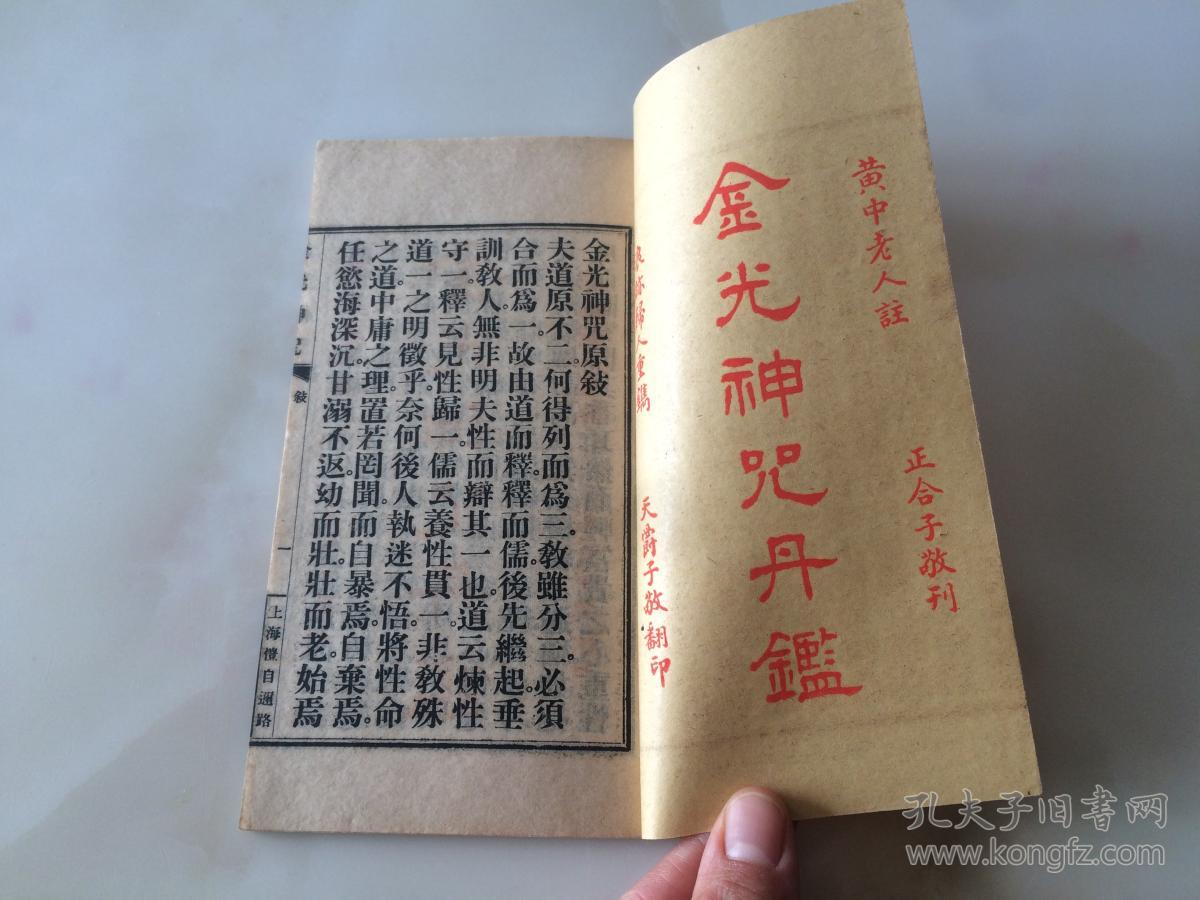 黃中老人註
正合子敬刊
金光神咒丹鑑
人重鐫
天爵子敬翻印
金光神咒原敍
夫道原不二。何得列而爲三。敎雖分三。必須
合而爲一。故由道而釋。釋而儒。後先繼起。垂
訓敎人。無非明夫性而辯其一也。道云煉性
守一。釋云見性歸一。儒云養性貫一。非敎殊
道一之明徵乎。奈何後人執迷不悟。將性命
之道。中庸之理。置若罔聞。而自暴焉。自棄焉。
任慾海深沉。甘溺不返。幼而壯。壯而老。始焉
神咒
敍
一
上海愷自邇路
孔夫子旧书网
www.kongfz.com